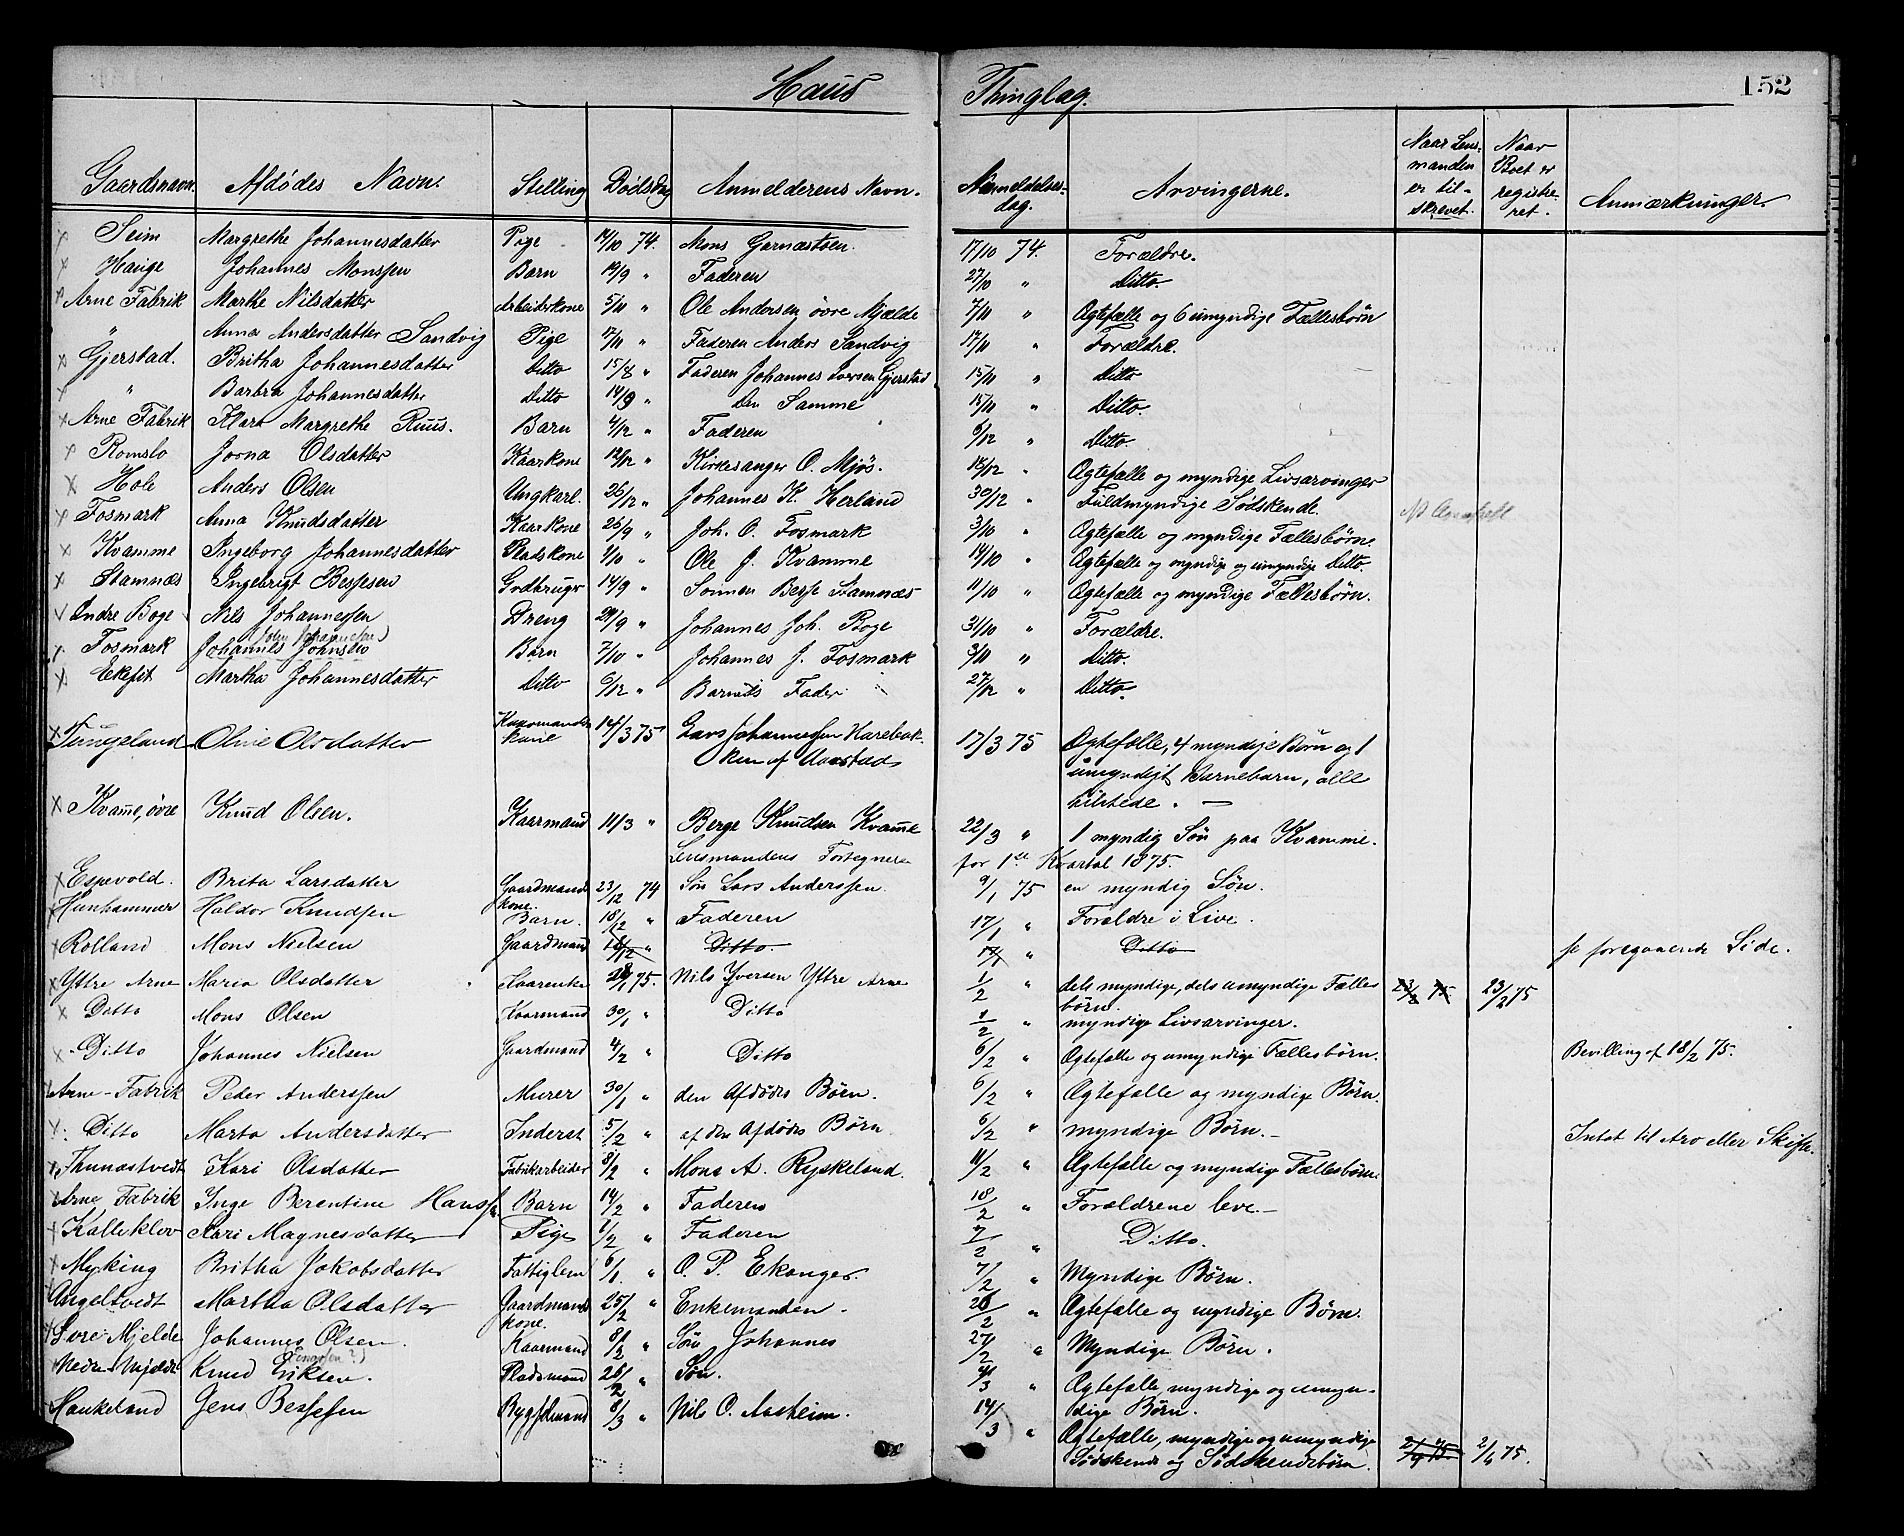 Haus Thinglag. 152
Gaardsnavn. Afdödes Navn. Stilling Dödsdag Anmelderens Navn. Anmeldelses-dag. Arvingerne. Naar Lens-manden er til-skrevet. Naar Boet er registre-ret. Anmærkninger.
Seim Margrethe Johannesdatter Pige 14/10 74. Mons Garnæstøen. 17/10 74. Forældre.
Hauge Johannes Monssen Barn 19/9 " Faderen 27/10 " Ditto.
Arne Fabrik Marthe Nilsdatter Arbeiderkone 5/10 " Ole Andersen övre Mjælde 7/10 " Ægtefælle og 6 umyndige Fællesbörn
" Anna Andersdatter Sandvig Pige 17/11 " Faderen Anders Sandvig 17/11 " Forældre.
Gjerstad. Britha Johannesdatter Ditto 15/8 " Faderen Johannes Iversen Gjerstad 15/10 " Ditto
" Barbra Johannesdatter Ditto 14/9 " Den Samme 15/10 " Ditto.
Arne Fabrik Klara Margrethe Ruus. Barn 4/12 " Faderen 6/12 " Ditto.
Romslo Jorna Olsdatter Kaarkone 12/12 " Kirkesanger O. Mjös. 18/12 " Ægtefælle og myndige Livsarvinger
Hole Anders Olsen Ungkarl. 26/12 " Johannes K. Herland 30/12 " Fuldmyndige Södskende
Fosmark Anna Knudsdatter Kaarkone 26/9 " Joh. O. Fosmark 3/10 " Ægtefælle og myndige Fællesbörn.
Kvamme Ingeborg Johannesdatter Pladskone 1/10 " Ole J. Kvamme 14/10 " Ægtefælle og myndige og umyndige Ditto.
Stamnæs Ingebrigt Bessesen Godbruger 14/9 " Sönnen Besse Stamnæs 11/10 " Ægtefælle og myndige Fællesbörn.
Indre Boge Nils Johannessen Dreng 29/9 " Johannes Joh. Boge 31/10 " Forældre.
Fosmark Johannes Johnsen Barn 7/10 " Johannes J. Fosmark 3/11 " Ditto.
Ekeset Martha Johannesdatter Ditto 6/12 " Barnets Fader 27/12 " Ditto.
Tungeland Oline Olsdatter Kaarmands kone 14/3 75 Lars Johannessen Harebak-
ken af Aarstad 17/3 75 Ægtefælle, 4 myndige Börn og 1
umyndigt Barnebarn, alle
tilstede. —
Kvamme, övre Knud Olsen. Kaarmand 11/3 " Berge Knudsen Kvamme 22/3 " 1 myndig Sön paa Kvamme.
Lensmandens Fortegnelse for 1ste Kvartal 1875.
Espevold. Brita Larsdatter Gaardmand kone. 23/12 74 Sön Lars Anderssen. 9/1 75 en myndig Sön.
Hunhammer Haldor Knudsen Barn. 18/12 " Faderen 17/1 " Forældre i Live.
Rolland Mons Nielsen Gaardmand 18/12 " Ditto 17/1 " Ditto se foregaaende Side.
Yttre Arne Maria Olsdatter Kaarenke 28/1 75. Nils Iversen Yttre Arne 1/2 " dels myndige, dels umyndige Fælles
börn. 23/2 75 23/2 75
Ditto Mons Olsen Kaarmand 30/1 " Ditto 1/2 " myndige Livsarvinger.
Ditto Johannes Nielsen Gaardmand 4/2 " Ditto 6/2 " Ægtefælle og umyndige Fællesbörn. Bevilling af 18/2 75.
Arne-Fabrik Peder Anderssen Murer 30/1 " den Afdödes Börn. 6/2 " Ægtefælle og myndige Börn.
Ditto Marta Andersdatter Inderst 5/2 " af den Afdödes Börn 6/2 " myndige Börn. — Intet til Arv eller Skifte.
Thunæstvedt Kari Olsdatter Fabrikarbeider 8/2 " Mons A. Ryskeland. 11/2 " Ægtefælle og myndige Fællesbörn.
Arne Fabrik Inge Berentine Hanss Barn 14/2 " Faderen 18/2 " Forældrene leve. —
Kalleklev Kari Magnesdatter Pige 1/2 " Faderen 7/2 " Ditto.
Myking Britha Jakobsdatter Fattiglem 6/1 " O. P. Ekanger. 7/2 " Myndige Börn.
Angeltvedt Martha Olsdatter Gaardmands kone. 25/2 " Enkemanden. 28/2 " Ægtefælle og myndige Börn.
Söre-Mjelde Johannes Olsen. Kaarmand 8/2 " Sön Johannes 27/2 " Myndige Börn.
Nedre Mjelde Knud Eriksen. Pladsmand 26/2 " Sön. 4/3 " Ægtefælle, myndige og umyn-
dige Börn.
Haukeland Jens Bessesen Bygselmand 8/3 " Nils O. Aasheim. 14/3 " Ægtefælle, myndige og umyndige
Södskende og Södskendebörn. 2/4 75 2/4 75.